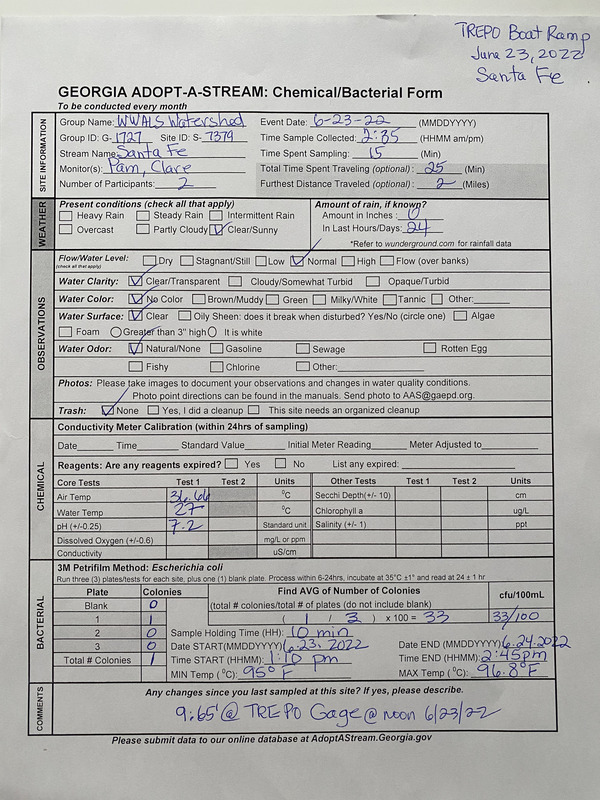 TREPO Boat Ramp
June 23, 2022
Santa Fe
GEORGIA ADOPT-A-STREAM: Chemical/Bacterial Form
To be conducted every month
SITE INFORMATION
Group Name: WWALS Watershed Event Date: 6-23-22 (MMDDYYYY)
Group ID: G-1727 Site ID: S-7379 Time Sample Collected: 2:35 (HHMM am/pm)
Stream Name Santa Fe Time Spent Sampling: 15 (Min)
Monitor(s): Pam, Clare Total Time Spent Traveling (optional): 25 (Min)
Number of Participants: 2 Furthest Distance Traveled (optional): 2 (Miles)
WEATHER
Present conditions (check all that apply) Amount of rain, if known?
Heavy Rain Steady Rain Intermittent Rain Amount in Inches: 0
Overcast Partly Cloudy Clear/Sunny In Last Hours/Days: 24
*Refer to wunderground.com for rainfall data
OBSERVATIONS
Flow/Water Level: Dry Stagnant/Still Low Normal High Flow (over banks)
(check all that apply)
Water Clarity: Clear/Transparent Cloudy/Somewhat Turbid Opaque/Turbid
Water Color: No Color Brown/Muddy Green Milky/White Tannic Other:
Water Surface: Clear Oily Sheen: does it break when disturbed? Yes/No (circle one) Algae
Foam Greater than 3" high It is white
Water Odor: Natural/None Gasoline Sewage Rotten Egg
Fishy Chlorine Other:
Photos: Please take images to document your observations and changes in water quality conditions.
Photo point directions can be found in the manuals. Send photo to AAS@gaepd.org.
Trash: None Yes, I did a cleanup This site needs an organized cleanup
CHEMICAL
Conductivity Meter Calibration (within 24hrs of sampling)
Date Time Standard Value Initial Meter Reading Meter Adjusted to
Reagents: Are any reagents expired? Yes No List any expired:
Core Tests Test 1 Test 2 Units Other Tests Test 1 Test 2 Units
Air Temp 36.66 °C Secchi Depth(+/- 10) cm
Water Temp 27 °C Chlorophyll a ug/L
pH (+/-0.25) 7.2 Standard unit Salinity (+/- 1) ppt
Dissolved Oxygen (+/-0.6) mg/L or ppm
Conductivity uS/cm
BACTERIAL
3M Petrifilm Method: Escherichia coli
Run three (3) plates/tests for each site, plus one (1) blank plate. Process within 6-24hrs, incubate at 35°C ±1° and read at 24 ± 1 hr
Plate Colonies Find AVG of Number of Colonies cfu/100mL
Blank 0 (total # colonies/total # of plates (do not include blank)
1 1 ( 1 / 3 ) x 100 = 33 33/100
2 0 Sample Holding Time (HH): 10 min
3 0 Date START(MMDDYYYY) 6.23.2022 Date END (MMDDYYYY) 6.24.2022
Total # Colonies 1 Time START (HHMM): 1:10 pm Time END (HHMM): 2:45pm
MIN Temp (°C): 95°F MAX Temp (°C): 96.8°F
COMMENTS
Any changes since you last sampled at this site? If yes, please describe.
9.65' @ TREPO Gage @ noon 6/23/22
Please submit data to our online database at AdoptAStream.Georgia.gov